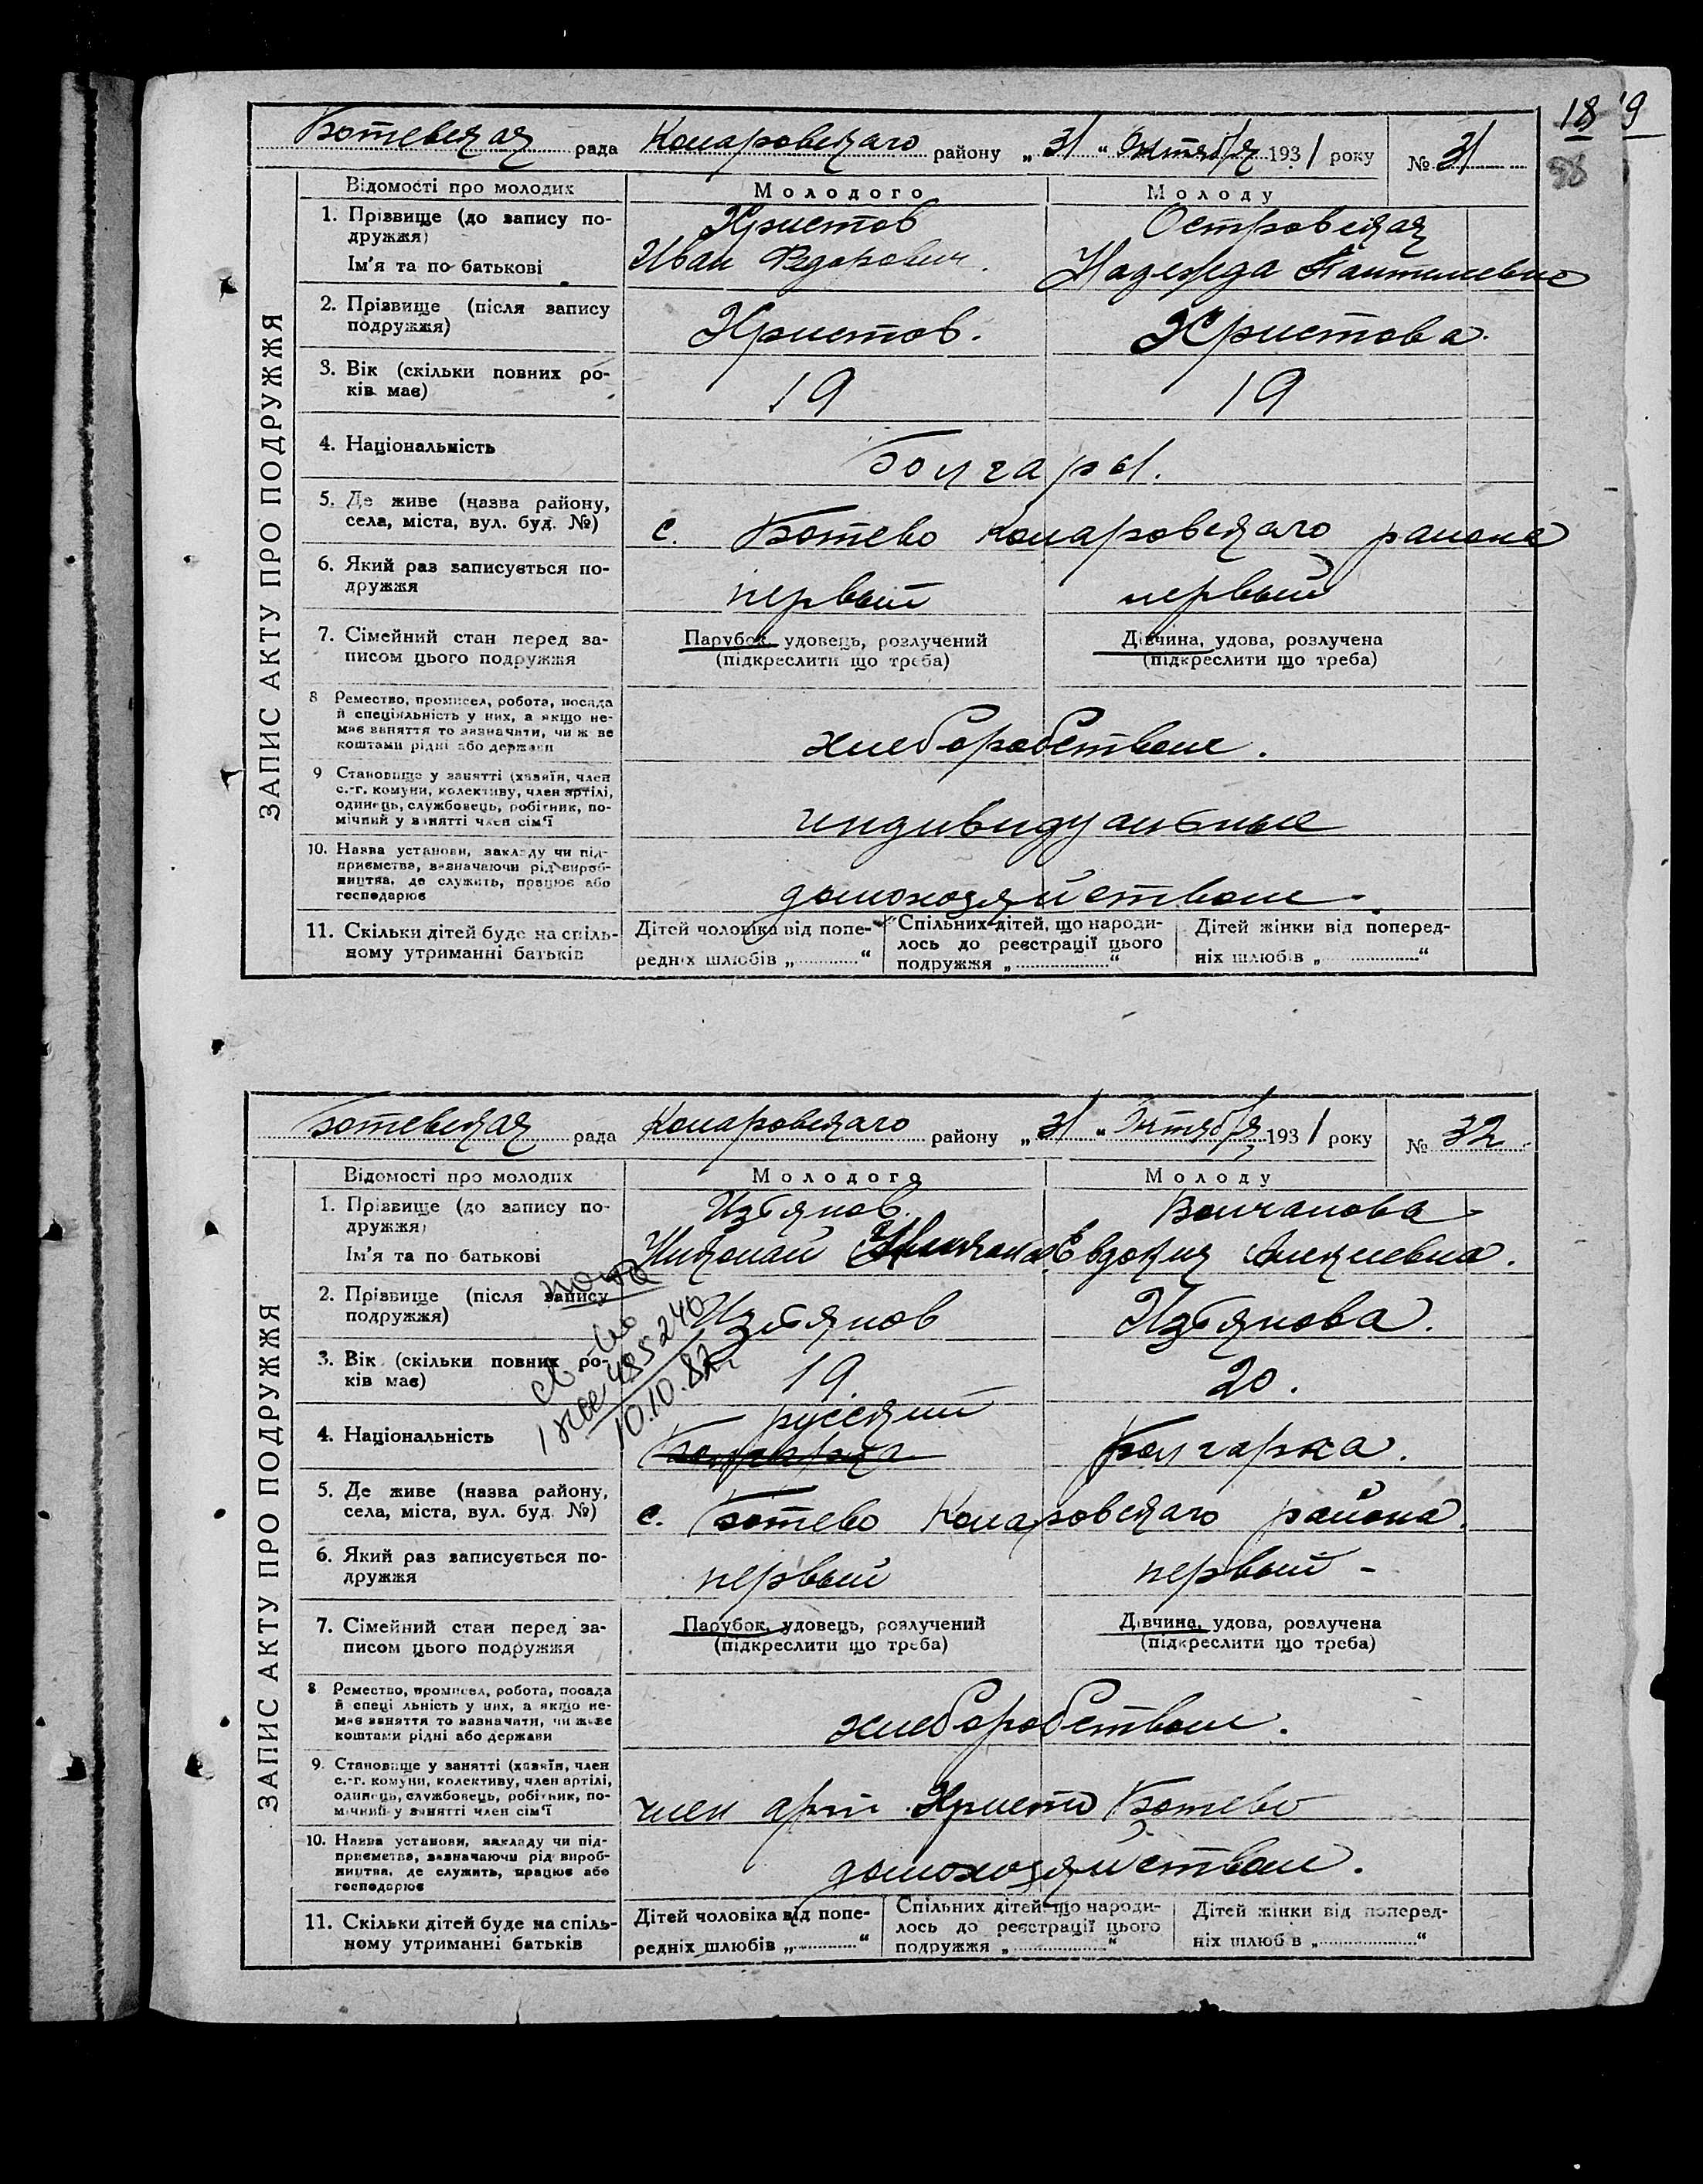 18 19
98
Ботевская рада Коларовскаго району „31" Октября 1931 року № 31
ЗАПИС АКТУ ПРО ПОДРУЖЖЯ
Відомості про молодих Молодого Молоду
1. Прізвище (до запису по- Христов Островская
дружжя)
Ім'я та по батькові Иван Федорович. Надежда Пантилевна
2. Прізвище (після запису
подружжя) Христов. Христова.
3. Вік (скільки повних ро-
ків має) 19 19
4. Національність Болгары.
5. Де живе (назва району,
села, міста, вул. буд. №) с. Ботево Коларовскаго района
6. Який раз записується по-
дружжя первый первый
7. Сімейний стан перед за- Парубок, удовець, розлучений Дівчина, удова, розлучена
писом цього подружжя (підкреслити що треба) (підкреслити що треба)
8 Ремество, промисел, робота, посада
й спеціяльність у них, а якщо не-
має заняття то зазначати, чи ж ве
коштами рідні або держави хлеборобством.
9 Становище у занятті (хазяїн, член
с.-г. комуни, колективу, член артілі,
одинець, службовець, робітник, по-
мічний у занятті член сім'ї индивидуальные
10. Назва установи, закладу чи під-
приємства, зазначаючи рід вироб-
ництва, де служить, працює або
господарює домохозяйством.
11. Скільки дітей буде на спіль- Дітей чоловіка від попе- Спільних дітей, що народи- Дітей жінки від поперед-
ному утриманні батьків редніх шлюбів „ " лось до реєстрації цього ніх шлюбів „ "
подружжя „ "
Ботевская рада Коларовскаго району „31" Октября 1931 року № 32.
ЗАПИС АКТУ ПРО ПОДРУЖЖЯ
Відомості про молодих Молодого Молоду
1. Прізвище (до запису по- Избянов. Волчанова
дружжя)
Ім'я та по батькові Николай Евдокия Алексеевна.
2. Прізвище (після запису
подружжя) Избянов Избянова.
св-во
485240
10.10.82г.
3. Вік (скільки повних ро-
ків має) 19. 20.
русский
4. Національність Болгарка.
5. Де живе (назва району,
села, міста, вул. буд. №) с. Ботево Коларовскаго района.
6. Який раз записується по-
дружжя первый первый -
7. Сімейний стан перед за- Парубок, удовець, розлучений Дівчина, удова, розлучена
писом цього подружжя (підкреслити що треба) (підкреслити що треба)
8 Ремество, промисел, робота, посада
й спеці льність у них, а якщо не-
має заняття то зазначати, чи живе
коштами рідні або держави хлеборобством.
9. Становище у занятті (хазяїн, член
с.-г. комуни, колективу, член артілі,
одинець, службовець, робітник, по-
мічний у занятті член сім'ї член арт. Христо Ботево
10. Назва установи, закладу чи під-
приємства, зазначаючи рід вироб-
ництва, де служить, працює або
господарює домохозяйством.
11. Скільки дітей буде на спіль- Дітей чоловіка від попе- Спільних дітей що народи- Дітей жінки від поперед-
ному утриманні батьків редніх шлюбів „ " лось до реєстрації цього ніх шлюб в „ "
подружжя „ "